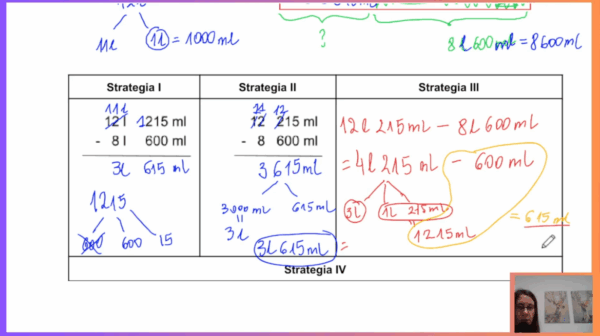 11l 1l = 1000 ml
?
8l 600 ml = 8600 ml
Strategia I
Strategia II
Strategia III
11l
12 l 1215 ml
- 8 l 600 ml
3l 615 ml
1215
600 15
11 12
12 215 ml
- 8 600 ml
3 615 ml
3000 ml 615 ml
3l
3l 615 ml =
12l 215 ml - 8l 600 ml
= 4l 215 ml - 600 ml
3l 1l 215 ml
1215 ml
= 615 ml
Strategia IV